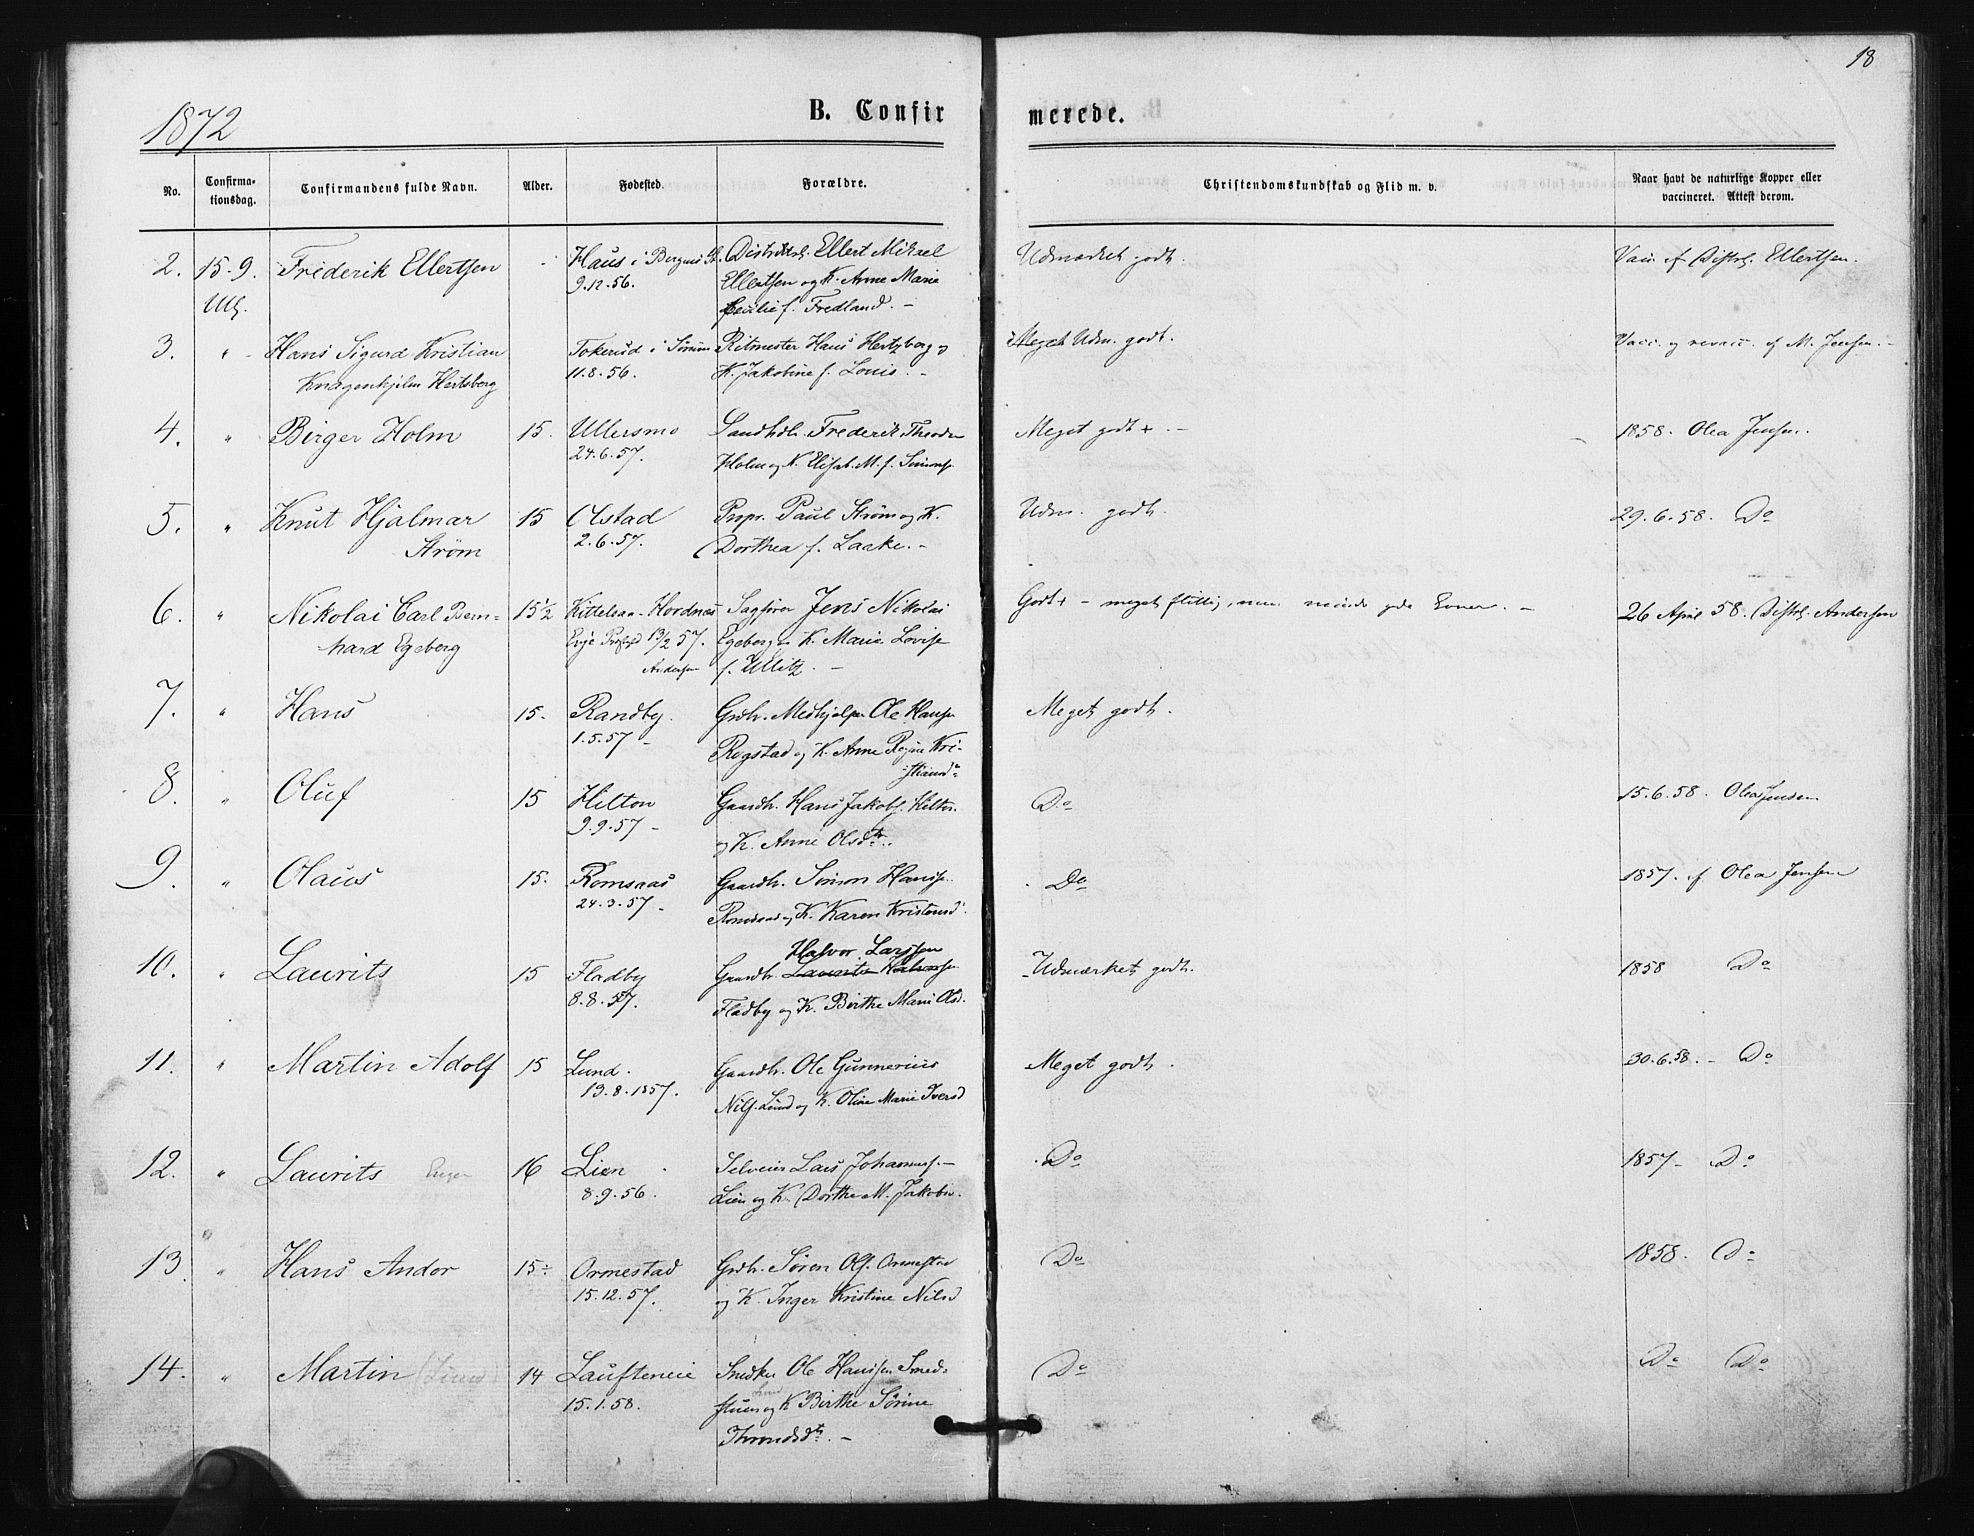 18
1872
B. Confir
merede.
No.
Confirma-
tionsdag.
Confirmandens fulde Navn.
Alder.
Fødested.
Forældre.
Christendomskundskab og Flid m. v.
Naar havt de naturlige Kopper eller
vaccineret. Attest derom.
2. 15-9. Frederik Ellertsen Haus i Bergens St. Distriktsl. Ellert Mikael Udmærket godt. Vacc. af Distrl. Ellertsen.
Ull. 9.12.56. Ellertsen og K. Anne Marie
Cecilie f. Fredland. -
3. " Hans Sigurd Kristian Tokerud i Sørum Ritmester Hans Hertzberg og Meget Udm. godt. Vacc. og revacc. af M. Jensen. -
Knagenhjelm Hertsberg 11.8.56. K. Jakobine f. Louis. -
4. " Birger Holm 15. Ullersmo Landhdl. Frederik Theodor Meget godt + . - 1858. Olea Jensen.
24.6.57. Holm og K. Elisab. M. f. Simons.
5. " Knut Hjalmar 15 Olstad Propr. Paul Strøm og K. Udm. godt. 29.6.58. Do
Strøm 2.6.57. Dorthea f. Laake. -
6. " Nikolai Carl Bern- 15½ Kittelsaa - Hordnes Sagfører Jens Nikolai Godt + - meget flittig, men mindre gode Evner. - 26 April 58. Distrl. Andersen
hard Egeberg Evje 13/2 57. Egeberg og K. Marie Lovise
Andersen f. Ullitz. -
7. " Hans 15. Randby. Grdbr. Medhjelper Ole Hansen Meget godt.
1.5.57 - Rogstad og K. Anne Regine Kri-
stiansd.
8. " Oluf 15 Hilton Gaardbr. Hans Jakobs. Hilton Do 15.6.58. Olea Jensen
9.9.57 - og K. Anne Olsdtr.
9. " Olaus 15. Romsaas Gaardbr. Simon Hanss. Do 1857. af Olea Jensen
24.3.57. - Romsaas og K. Karen Kristensd.
Halvor Larssen
10. " Laurits 15 Fladby Gaardbr. Laurits Halvorsen Udmærket godt. 1858 Do
8.8.57. Fladby og K. Birthe Marie Olsd.
11. " Martin Adolf 15 Lund. Gaardbr. Ole Gunnerius Meget godt. 30.6.58. - Do
13.8.1857. Nils. Lund og K. Oline Marie Iversd
12. " Laurits 16 Lien Selveier Lars Johanness. - Do 1857 - Do
8.9.56. Lien og K. Dorthe M. Jakobs.
13 " Hans Andor 15 ÷ Ormestad Grdbr. Søren Ols. Ormestad Do 1858. Do
15.12.57. og K. Inger Kristine Nilsd
14. " Martin (Lund) 14 Laufteneie Snedker Ole Hanssen Smed- Do Do Do
15.1.58. stuen og K Birthe Sørine
Throndsdtr. -